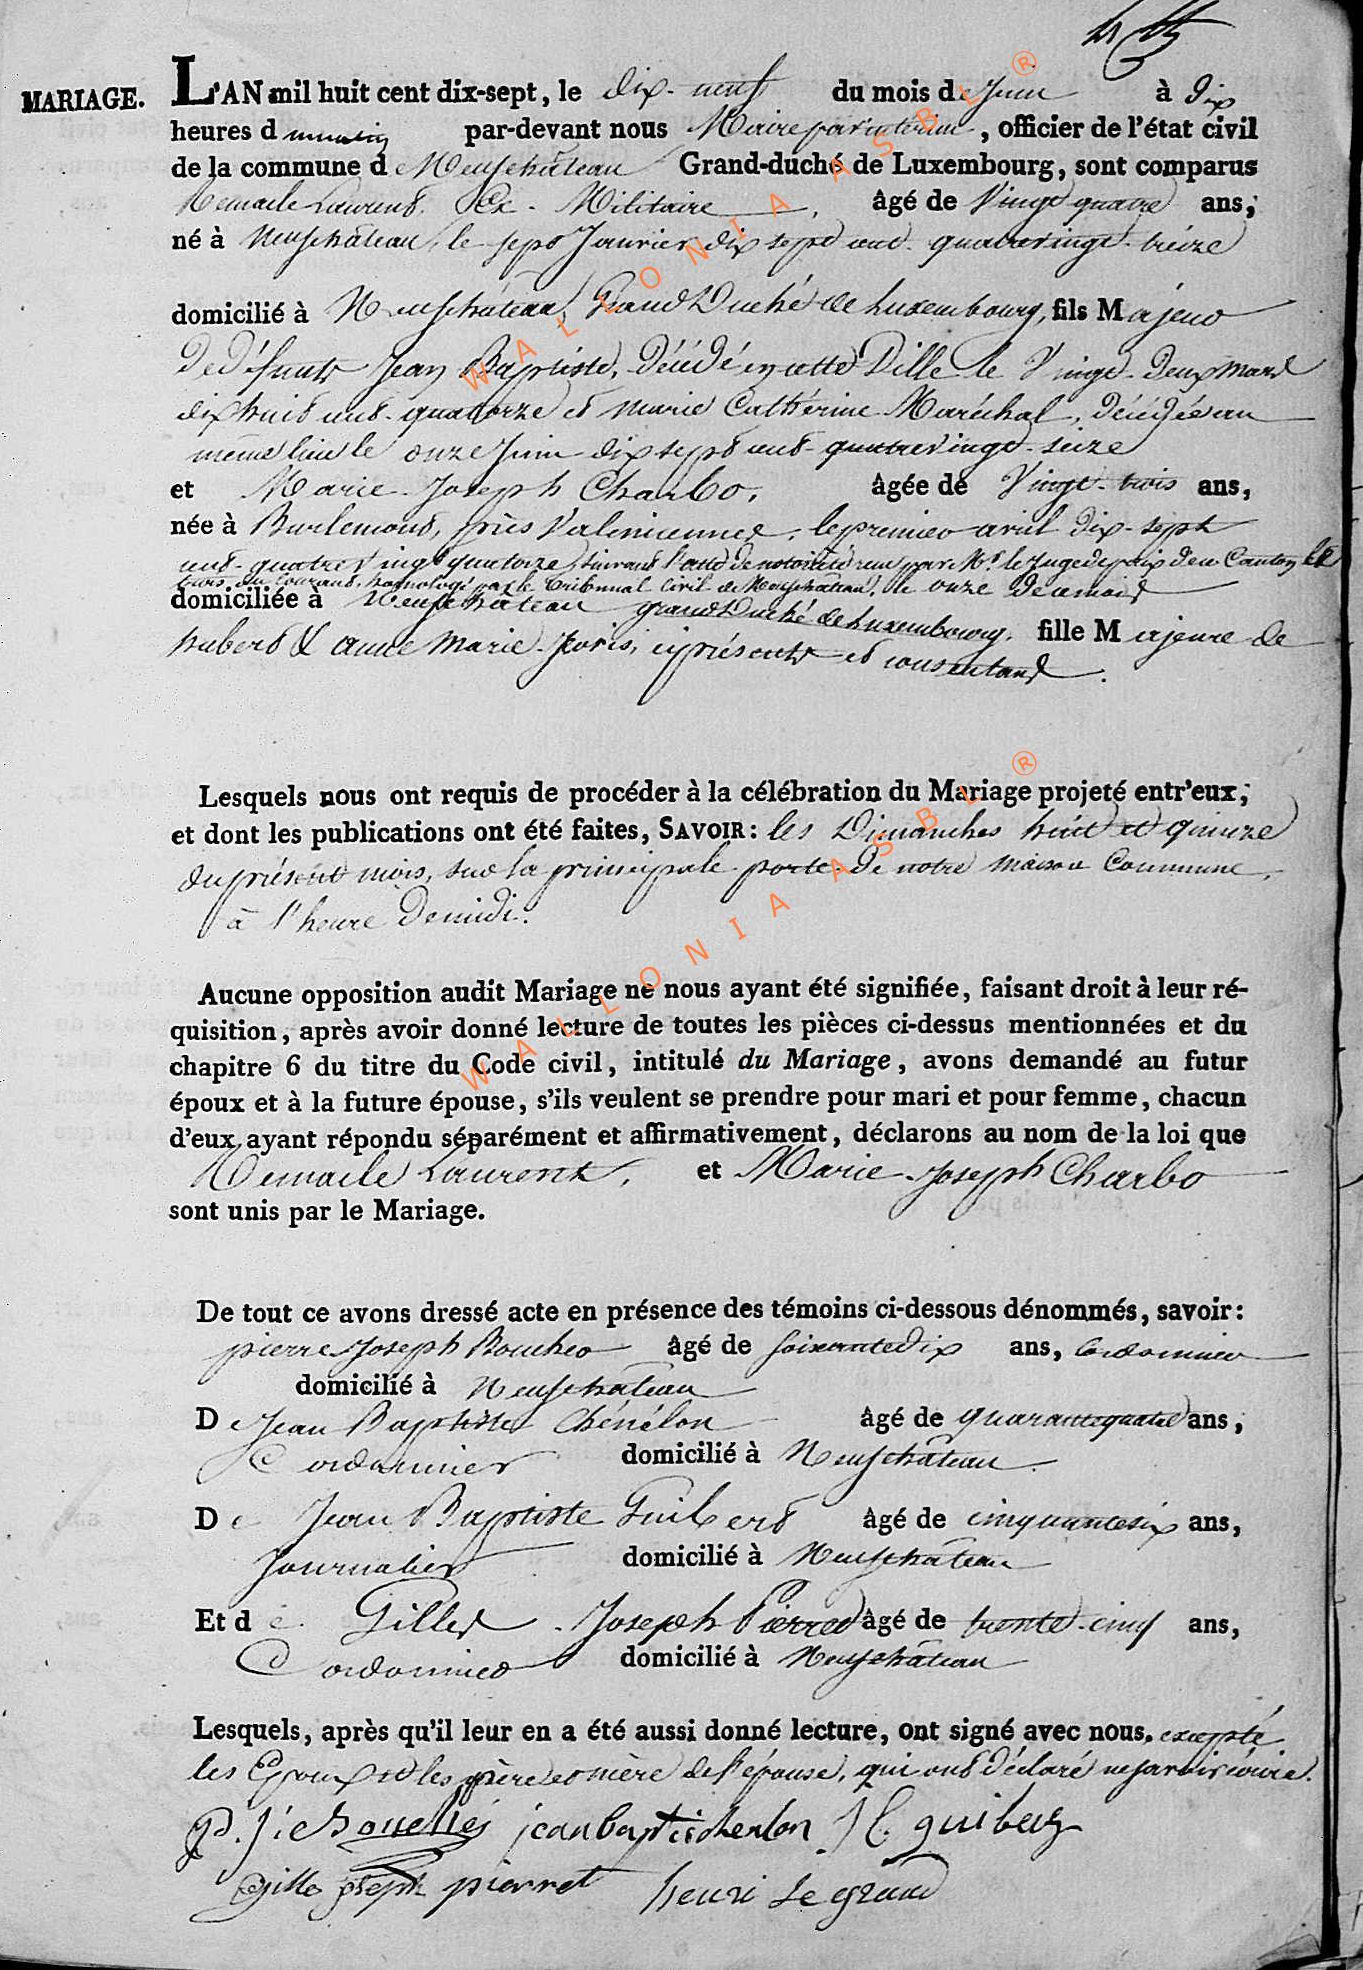 MARIAGE.
L'AN mil huit cent dix-sept, le dix-neuf du mois de Juin à dix
heures du matin par-devant nous Maire par interim, officier de l'état civil
de la commune de Neufchâteau Grand-duché de Luxembourg, sont comparus
Remacle Laurent. Ex-Militaire, âgé de Vingt quatre ans,
né à Neufchâteau, le sept Janvier dix sept cent quatrevingt-treize
domicilié à Neufchâteau, Grand Duché de Luxembourg, fils Majeur
De défunts Jean Baptiste, Décédé en cette Ville le Vingt-Deux Mars
dix huit cent-quatorze et Marie Cathérine Maréchal, Décédée au
même lieu le onze Juin dix sept cent-quatrevingt-seize
et Marie-Joseph Charbo, âgée de Vingt-trois ans,
née à Burlemont, près Valenciennes, le premier avril dix-sept
cent-quatrevingt quatorze, suivant l'acte de notoriété rendu par Mr. le Juge de paix de ce Canton le
trois du Courant, homologué par le Tribunal Civil de Neufchâteau, le onze De ce mois
domiciliée à Neufchâteau grand Duché de Luxembourg, fille Majeure de
hubert & anne Marie Joris, ci présents et consentans.
Lesquels nous ont requis de procéder à la célébration du Mariage projeté entr'eux,
et dont les publications ont été faites, SAVOIR: les Dimanches huit et quinze
du présent mois, sur la principale porte De notre maison Commune,
à l'heure De midi.
Aucune opposition audit Mariage ne nous ayant été signifiée, faisant droit à leur ré-
quisition, après avoir donné lecture de toutes les pièces ci-dessus mentionnées et du
chapitre 6 du titre du Code civil, intitulé du Mariage, avons demandé au futur
époux et à la future épouse, s'ils veulent se prendre pour mari et pour femme, chacun
d'eux ayant répondu séparément et affirmativement, déclarons au nom de la loi que
Remacle Laurent, et Marie-Joseph Charbo
sont unis par le Mariage.
De tout ce avons dressé acte en présence des témoins ci-dessous dénommés, savoir:
pierre Joseph Boucher âgé de soixante dix ans, Cordonnier
domicilié à Neufchâteau
De Jean Baptiste Chénélon âgé de quarante quatre ans,
Cordonnier domicilié à Neufchâteau.
De Jean Baptiste Guibert âgé de cinquante six ans,
Journalier domicilié à Neufchâteau
Et de Gilles-Joseph Pierret âgé de trente-cinq ans,
Cordonnier domicilié à Neufchâteau
Lesquels, après qu'il leur en a été aussi donné lecture, ont signé avec nous, excepté
les Epoux et les père et mère de l'épouse, qui ont Déclaré ne savoir écrire.
jean baptis chenlon J B guibert
gille joseph pierret henri Le grand
WALLONIA ASBL ®
WALLONIA ASBL ®